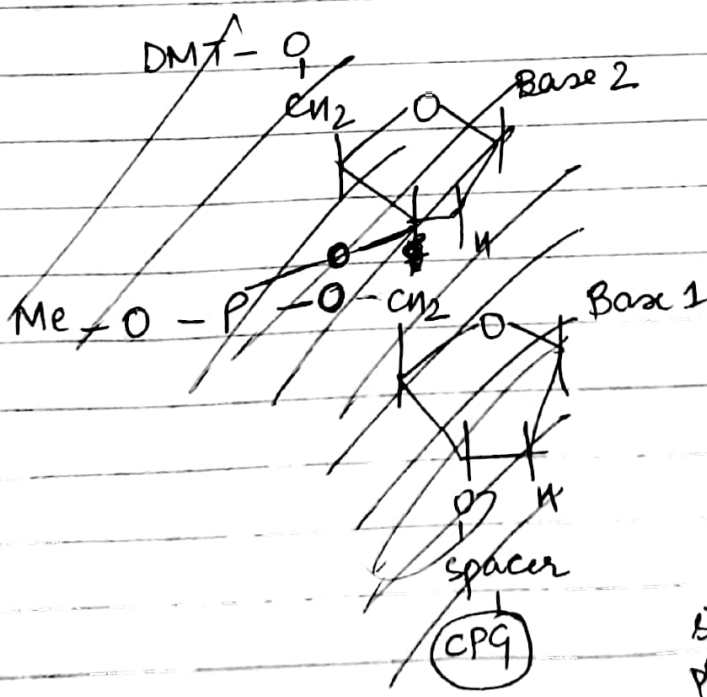 DMT - O
CH2
O
Base 2
H
O
Me - O - P - O - CH2
O
Base 1
O
H
Spacer
CPG